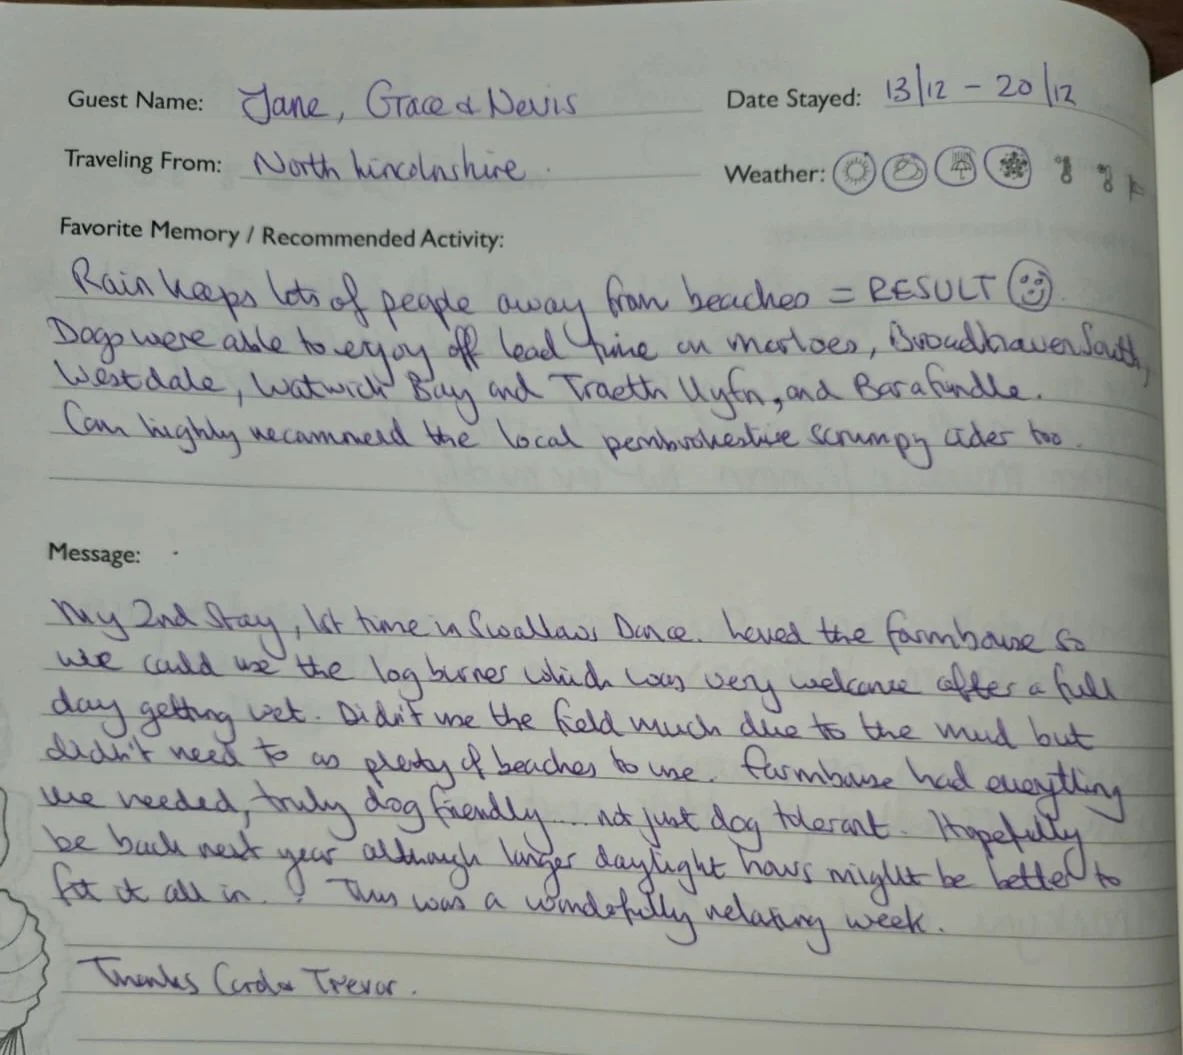 Guest Name: Jane, Grace & Nevis
Date Stayed: 13/12 - 20/12
Traveling From: North Lincolnshire.
Weather:
Favorite Memory / Recommended Activity:
Rain keeps lots of people away from beaches = RESULT
Dogs were able to enjoy off lead time on marloes, Broadhaven South,
Westdale, Watwich Bay and Traeth Llyfn, and Barafundle.
Can highly recommend the local pembrokeshire scrumpy cider too.
Message:
My 2nd Stay, 1st time in Swallows Dance. Loved the farmhouse so
we could use the log burner which was very welcome after a full
day getting wet. Didn't use the field much due to the mud but
didn't need to as plenty of beaches to use. Farmhouse had everything
we needed, truly dog friendly.... not just dog tolerant. Hopefully
be back next year although longer daylight hours might be better to
fit it all in! This was a wonderfully relaxing week.
Thanks Carol & Trevor.